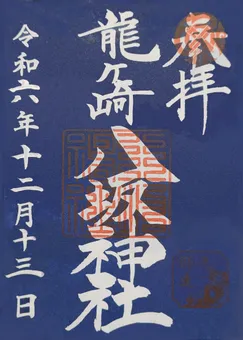 奉拝
龍ヶ崎
八坂神社
令和六年十二月十三日